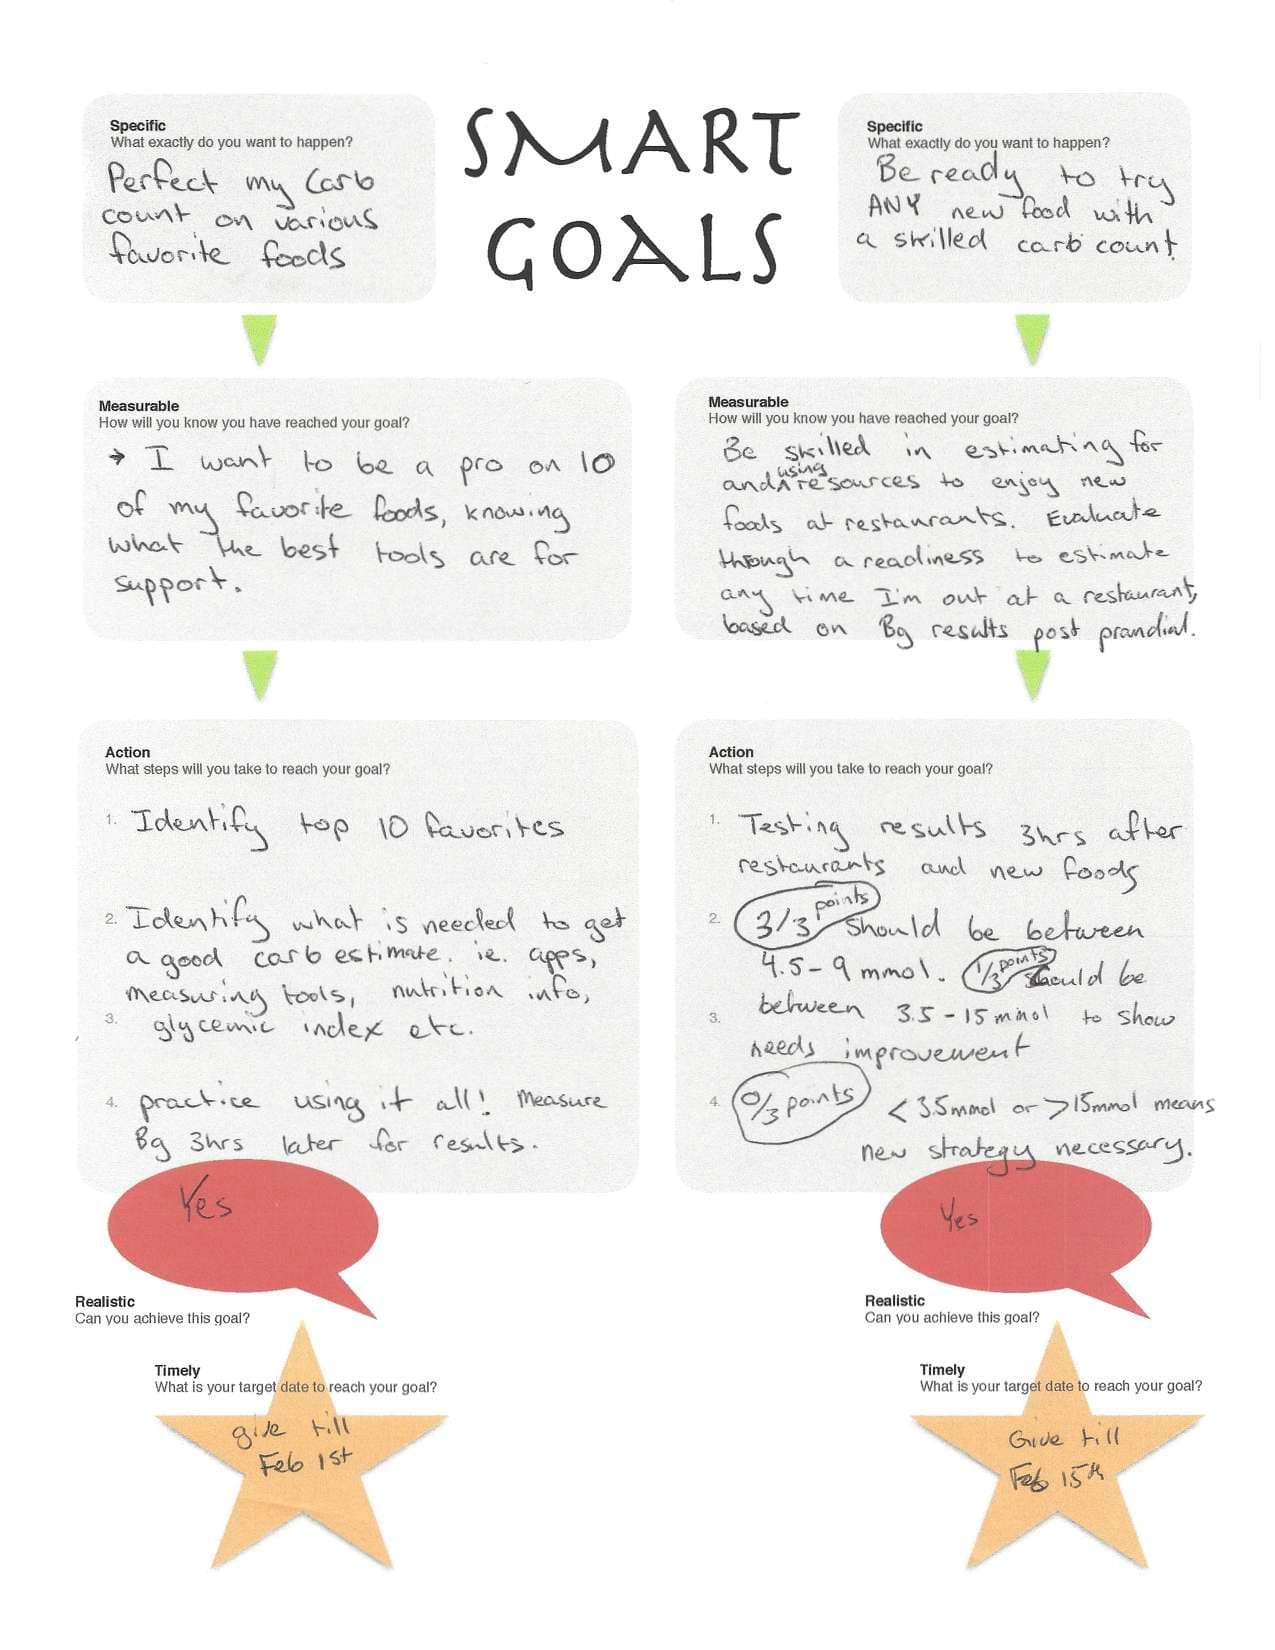 SMART
GOALS
Specific
What exactly do you want to happen?
Perfect my Carb
count on various
favorite foods
Measurable
How will you know you have reached your goal?
→ I want to be a pro on 10
of my favorite foods, knowing
what the best tools are for
support.
Action
What steps will you take to reach your goal?
1. Identify top 10 favorites
2. Identify what is needed to get
a good carb estimate. ie. apps,
measuring tools, nutrition info,
3. glycemic index etc.
4. practice using it all! Measure
Bg 3hrs later for results.
Yes
Realistic
Can you achieve this goal?
Timely
What is your target date to reach your goal?
give till
Feb 1st
Specific
What exactly do you want to happen?
Be ready to try
ANY new food with
a skilled carb count.
Measurable
How will you know you have reached your goal?
Be skilled in estimating for
and using resources to enjoy new
foods at restaurants. Evaluate
through a readiness to estimate
any time I'm out at a restaurant,
based on Bg results post prandial.
Action
What steps will you take to reach your goal?
1. Testing results 3hrs after
restaurants and new foods
2. 3/3 points should be between
4.5-9 mmol. 1/3 points should be
3. between 3.5-15 mmol to show
needs improvement
4. 0/3 points <3.5mmol or >15mmol means
new strategy necessary.
Yes
Realistic
Can you achieve this goal?
Timely
What is your target date to reach your goal?
Give till
Feb 15th